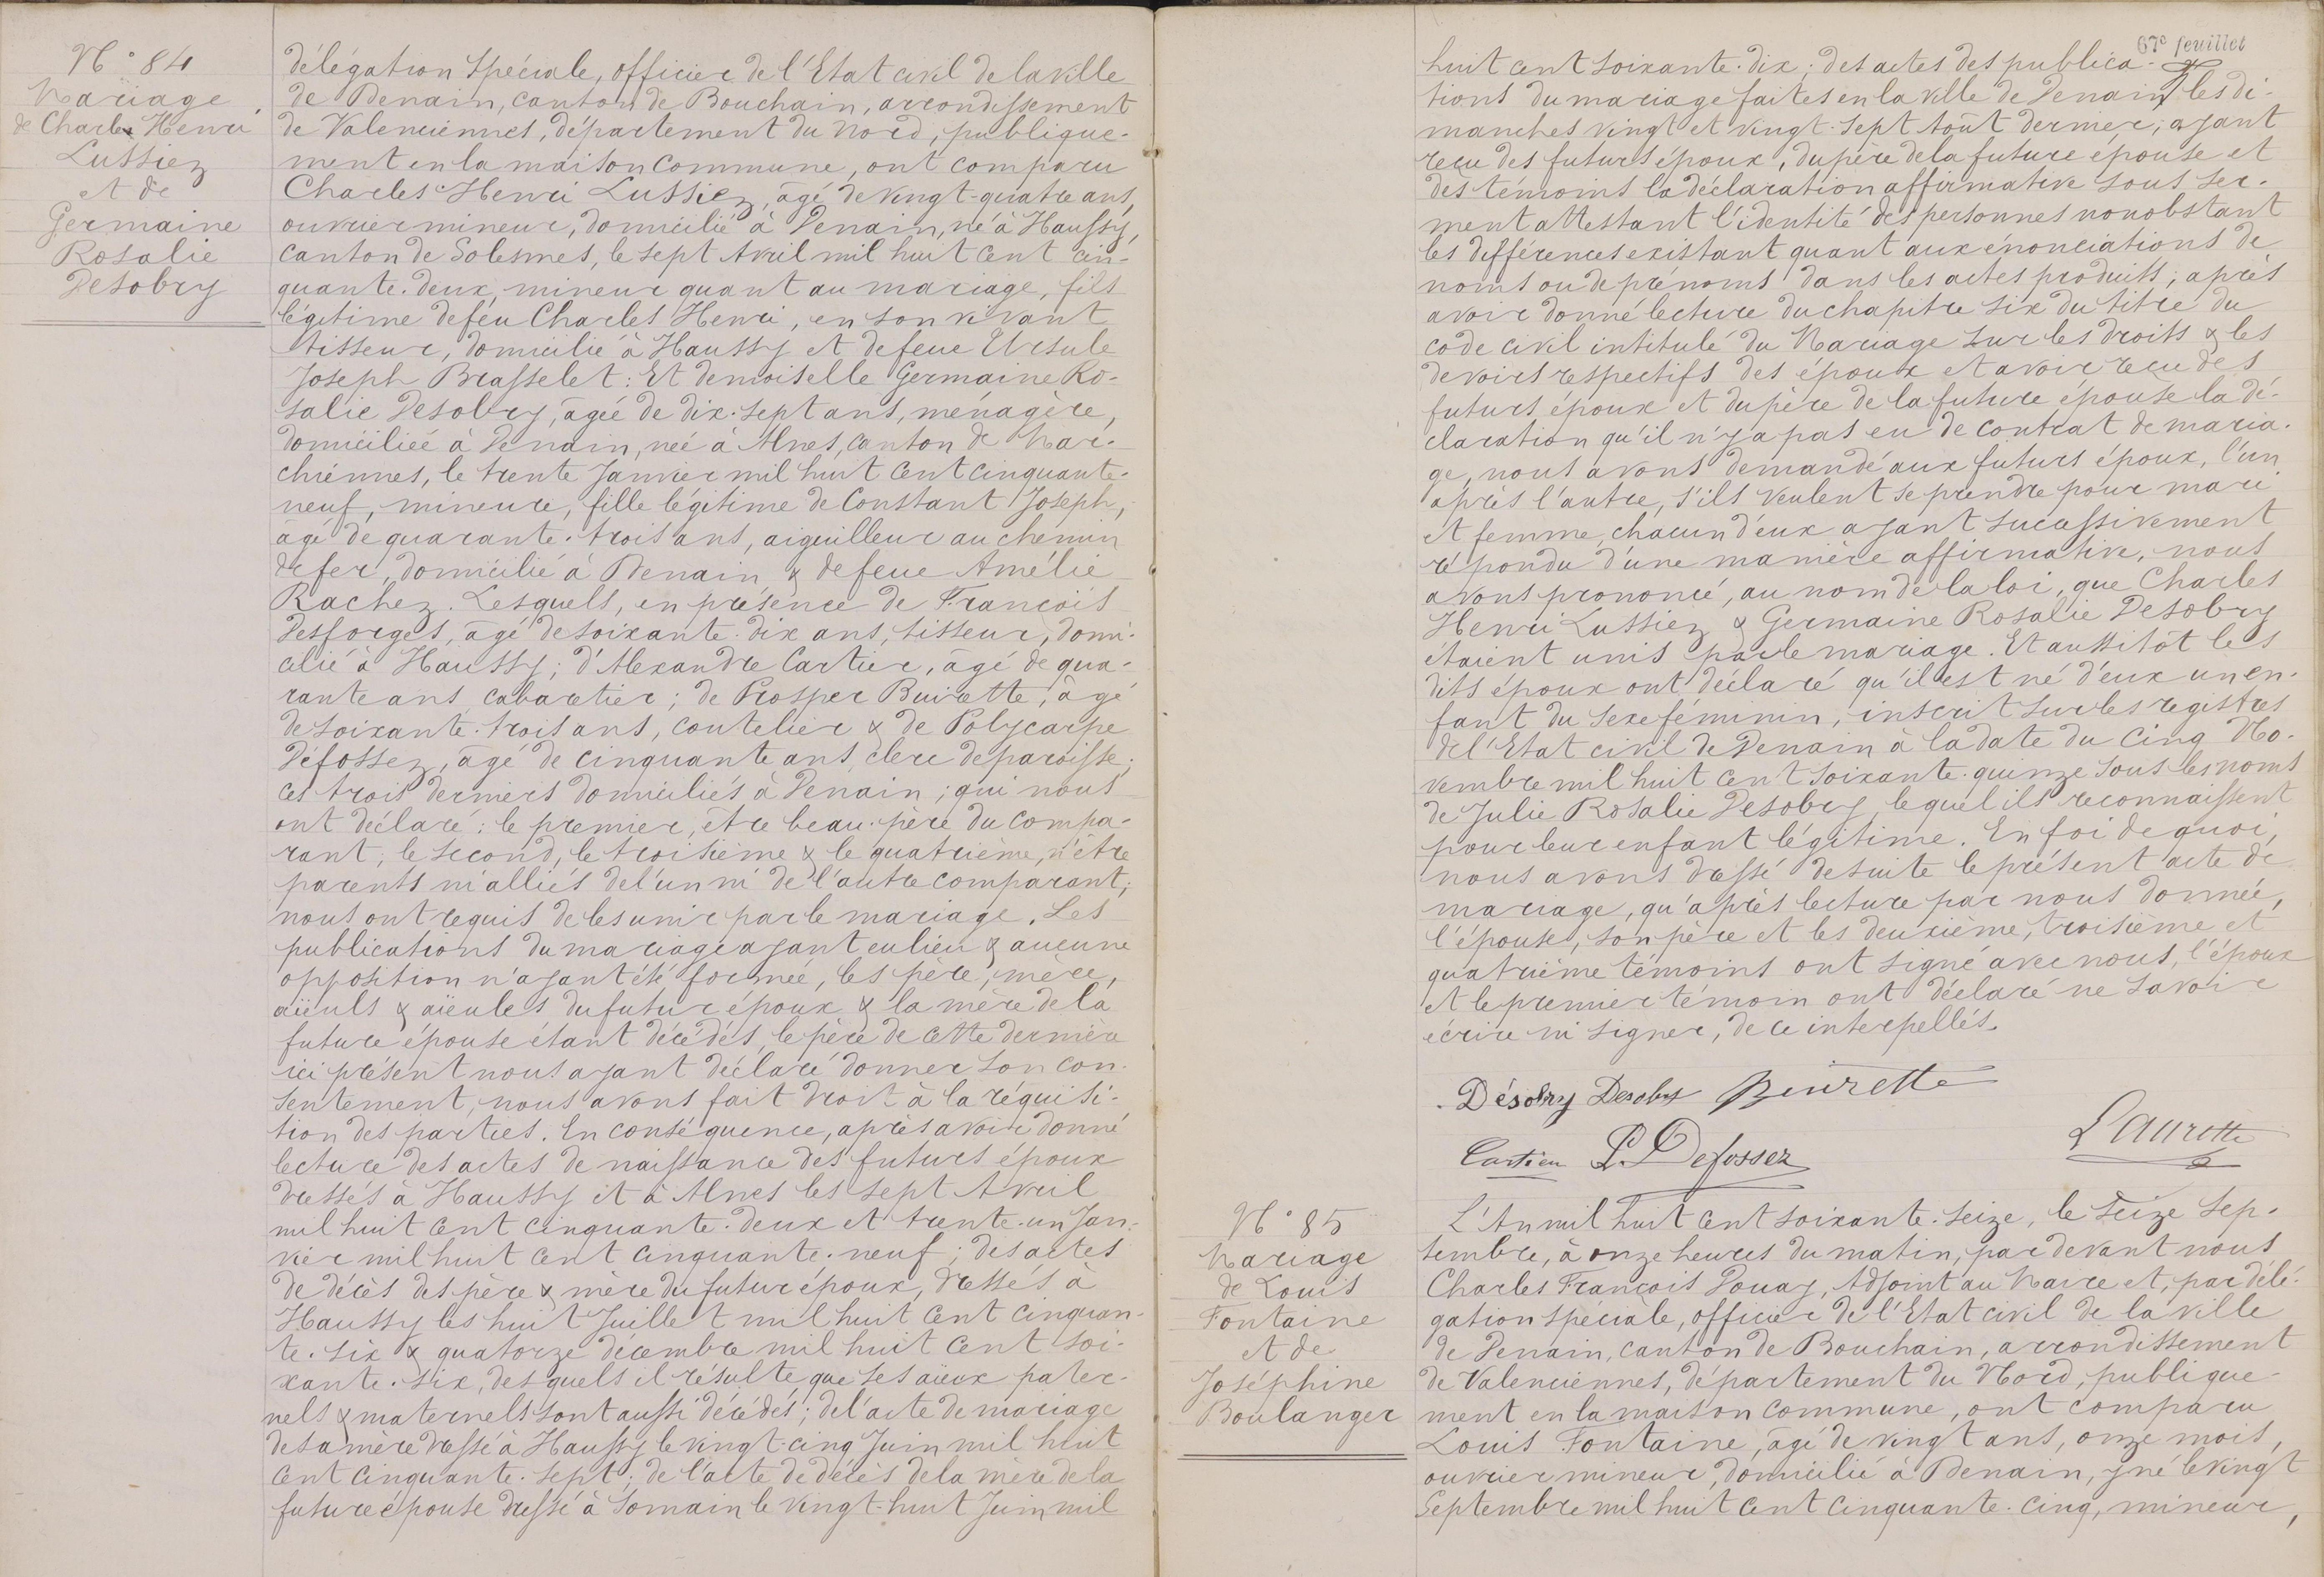 N° 84
Mariage
de Charles Henri
Lussiez
et de
Germaine
Rosalie
Desobry
délégation spéciale, officier de l'Etat civil de la ville
de Denain, canton de Bouchain, arrondissement
de Valenciennes, département du Nord, publique-
ment en la maison commune, ont comparu
Charles Henri Lussiez, âgé de vingt-quatre ans,
ouvrier mineur, domicilié à Denain, né à Haussy,
canton de Solesmes, le sept Avril mil huit cent cin-
quante-deux, mineur quant au mariage, fils
légitime de feu Charles Henri, en son vivant
tisseur, domicilié à Haussy et de feue Ursule
Joseph Brasselet: Et demoiselle Germaine Ro-
salie Desobry, âgée de dix-sept ans, ménagère,
domiciliée à Denain, née à Alnes, canton de Mar-
chiennes, le trente Janvier mil huit cent cinquante-
neuf, mineure, fille légitime de Constant Joseph,
âgé de quarante-trois ans, aiguilleur au chemin
de fer, domicilié à Denain & de feue Amélie
Rachez. Lesquels, en présence de François
Desforges, âgé de soixante-dix ans, tisseur, domi-
cilié à Haussy; d'Alexandre Cartier, âgé de qua-
rante ans, cabaretier; de Prosper Buirette, âgé
de soixante-trois ans, coutelier & de Polycarpe
Défossez, âgé de cinquante ans, clerc de paroisse;
ces trois derniers domiciliés à Denain; qui nous
ont déclaré: le premier, être beau-père du compa-
rant, le second, le troisième & le quatrième, n'être
parents ni alliés de l'un ni de l'autre comparant;
nous ont requis de les unir par le mariage. Les
publications du mariage ayant eu lieu & aucune
opposition n'ayant été formée, les père, mère,
aïeuls & aïeules du futur époux & la mère de la
future épouse étant décédés, le père de cette dernière
ici présent nous ayant déclaré donner son con-
sentement, nous avons fait droit à la réquisi-
tion des parties. En conséquence, après avoir donné
lecture des actes de naissance des futurs époux
dressés à Haussy et à Alnes les sept Avril
mil huit cent cinquante-deux et trente-un Jan-
vier mil huit cent cinquante-neuf; des actes
de décès des père & mère du futur époux, dressés à
Haussy les huit Juillet mil huit cent cinquan-
te-six & quatorze décembre mil huit cent soi-
xante-six, desquels il résulte que ses aïeux pater-
nels & maternels sont aussi décédés; de l'acte de mariage
de sa mère dressé à Haussy le vingt-cinq Juin mil huit
cent cinquante-sept; de l'acte de décès de la mère de la
future épouse dressé à Somain le vingt-huit Juin mil
67e feuillet
huit cent soixante-dix; des actes des publica-
tions du mariage faites en la ville de Denain les di-
manches vingt et vingt-sept août dernier; ayant
reçu des futurs époux, du père de la future épouse et
des témoins la déclaration affirmative sous ser-
ment attestant l'identité des personnes nonobstant
les différences existant quant aux énonciations de
noms ou de prénoms dans les actes produits; après
avoir donné lecture du chapitre six du titre du
code civil intitulé du Mariage sur les droits & les
devoirs respectifs des époux et avoir reçu des
futurs époux et du père de la future épouse la dé-
claration qu'il n'y a pas eu de contrat de maria-
ge, nous avons demandé aux futurs époux, l'un
après l'autre, s'ils veulent se prendre pour mari
et femme, chacun d'eux ayant successivement
répondu d'une manière affirmative, nous
avons prononcé, au nom de la loi, que Charles
Henri Lussiez & Germaine Rosalie Desobry
étaient unis par le mariage. Et aussitôt les
dits époux ont déclaré qu'il est né d'eux un en-
fant du sexe féminin, inscrit sur les registres
de l'Etat civil de Denain à la date du cinq No-
vembre mil huit cent soixante-quinze sous les noms
de Julie Rosalie Desobry, lequel ils reconnaissent
pour leur enfant légitime. En foi de quoi,
nous avons dressé de suite le présent acte de
mariage, qu'après lecture par nous donnée,
l'épouse, son père et les deuxième, troisième et
quatrième témoins ont signé avec nous, l'époux
et le premier témoin ont déclaré ne savoir
écrire ni signer, de ce interpellés.
Désobry Desobry Buirette
Cartier P. Defossez Laurette
N° 85
Mariage
de Louis
Fontaine
et de
Joséphine
Boulanger
L'An mil huit cent soixante-seize, le seize Sep-
tembre, à onze heures du matin, par devant nous
Charles François Douay, Adjoint au Maire et, par délé-
gation spéciale, officier de l'Etat civil de la ville
de Denain, canton de Bouchain, arrondissement
de Valenciennes, département du Nord, publique-
ment en la maison commune, ont comparu
Louis Fontaine, âgé de vingt ans, onze mois,
ouvrier mineur, domicilié à Denain, y né le vingt
Septembre mil huit cent cinquante-cinq, mineur,